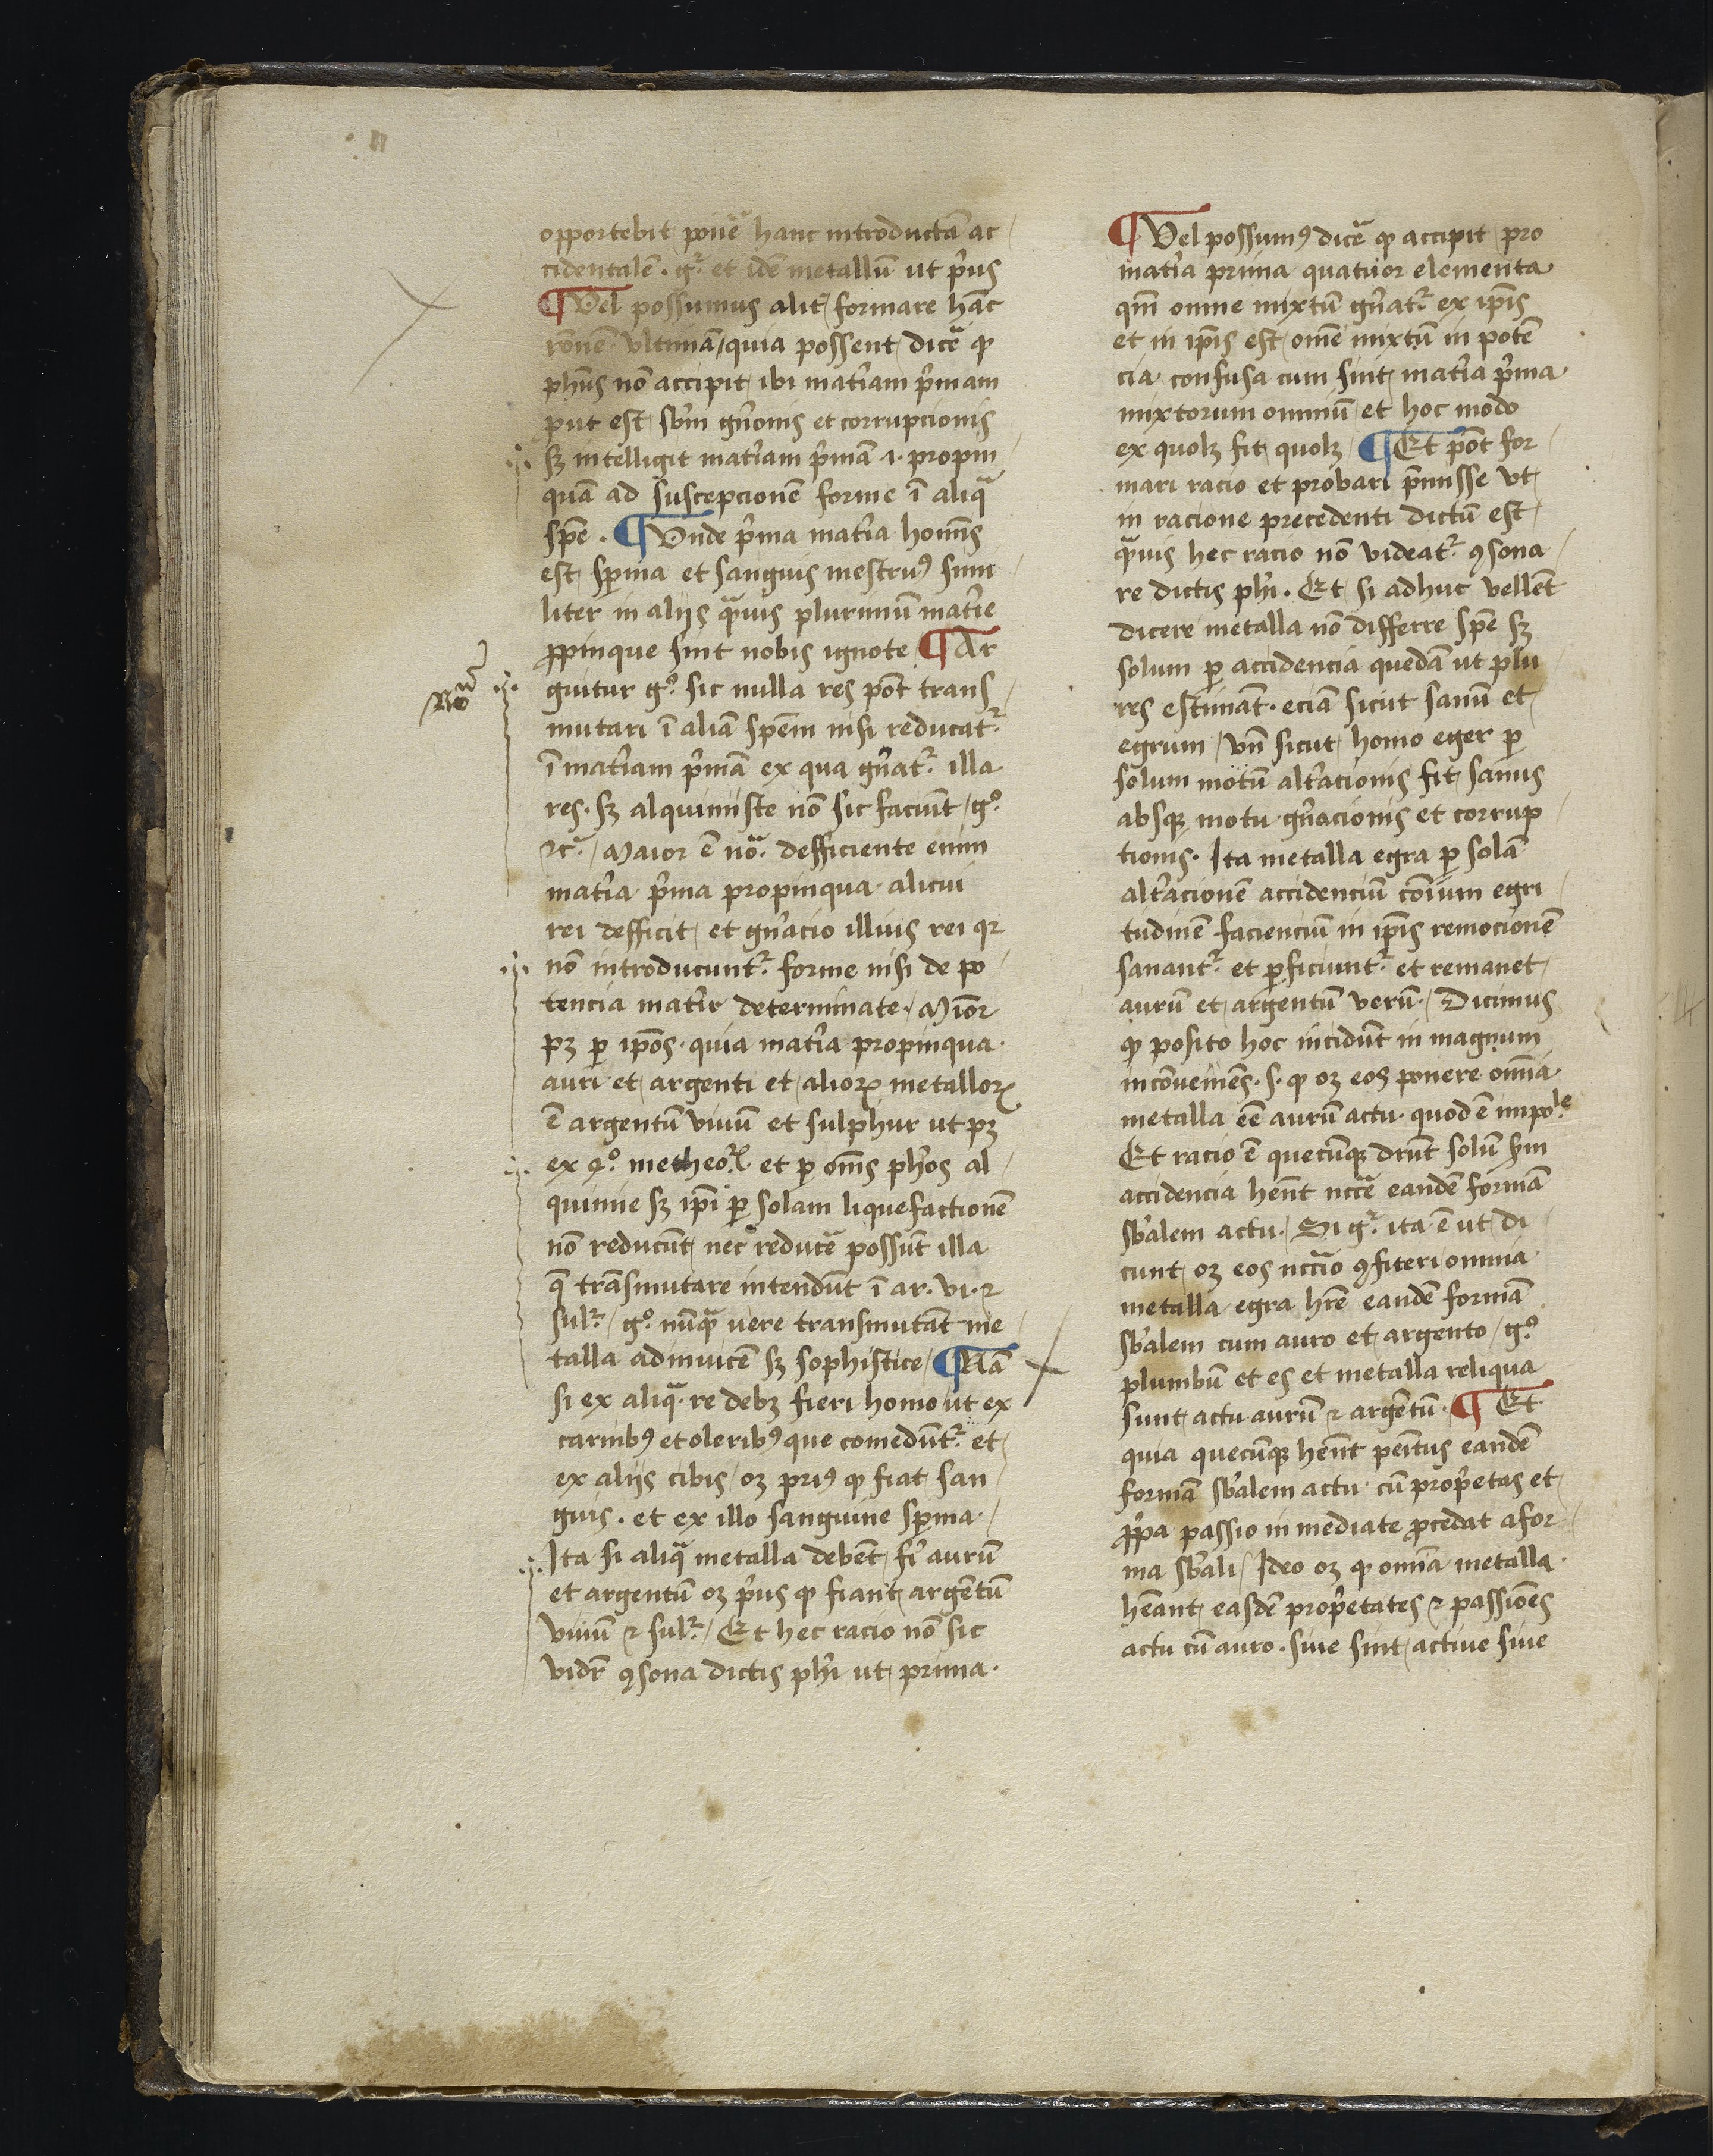 opportebit ponẽ hanc introductã ac
cidentalẽ . gᷣ. et idẽ metallũ ut p̃us
¶ Vel possumus alit̃ formare hãc
rõnẽ Vltimã / quia possent dicẽ ꝙ
phũs nõ accipit ibi mat̃iam p̃mam
put est sb̃m gñonis et corrupcionis
sꝫ intelligit mat̃iam p̃mã .i. propin
quã ad suscepcionẽ forme ĩ aliqᵃ
spẽ . ¶ Vnde p̃ma mat̃ia homĩs
est sp̃ma et sanguis mestruꝰ simi
liter in aliis qᵃuis plurimũ mat̃ie
ꝓpinque sint nobis ignote ¶ Ar
guitur gᵒ. sic nulla res põt trans
mutari ĩ aliã spẽm nisi reducatᷣ
ĩ mat̃iam p̃mã ex qua gñatᷣ illa
res . sꝫ alquimiste nõ sic faciũt / gᵒ.
⁊cᵃ. / Maior ẽ nõᵃ. defficiente enim
mat̃ia p̃ma propinqua alicui
rei defficit et gñacio illius rei qꝛ
nõ introducuntᷣ. forme nisi de po
tencia mat̃ie determinate . Mĩor
pꝫ ꝑ ip̃os . quia mat̃ia propinqua
auri et argenti et alioꝝ metalloꝝ
ẽ argentũ viuũ et sulphur ut pꝫ
ex 4ᵒ. metheoꝝ. et ꝑ om̃s ph̃os al
quimie sꝫ ip̃i ꝑ solam liquefactionẽ
nõ reducũt nec reducẽ possũt illa
q̃ trãsmutare intendũt ĩ ar. vi. ⁊
sulᷣ. / gᵒ. nũqᵃ uere transmutãt me
talla adinuicẽ sꝫ sophistice / ¶ Nã
si ex aliqᵃ re debꝫ fieri homo ut ex
carnibꝰ et oleribꝰ que comedũtᷣ. et
ex aliis cibis / oꝫ priꝰ ꝙ fiat san
guis . et ex illo sanguine sp̃ma .
Ita si aliqᵃ metalla debẽt fi̾ aurũ
et argentũ oꝫ p̃us ꝙ fiant argẽtũ
viuũ ⁊ sulᷣ. / Et hec racio nõ sic
vidr̃ ꝯsona dictis ph̃i ut prima .
Noᵃ
¶ Vel possumꝰ dicẽ ꝙ accipit pro
mat̃ia prima quatuor elementa
qm̃ omne mixtũ gñatᷣ ex ip̃is
et in ip̃is est om̃e mixtũ in potẽ
cia confusa cum sint mat̃ia p̃ma
mixtorum omniũ et hoc modo
ex quolꝫ fit quolꝫ / ¶ Et põt for
mari racio et probari p̃misse vt
in racione precedenti dictũ est
qᵃuis hec racio nõ videatᷣ ꝯsona
re dictis ph̃i . Et si adhuc vellẽt
dicere metalla nõ differre spẽ sꝫ
solum ꝑ accidencia quedã ut plu
res estimãt . eciã sicut sanũ et
egrum / vñ sicut homo eger ꝑ
solum motũ alt̃acionis fit sanus
absqꝫ motu gñacionis et corrup
tionis . Ita metalla egra ꝑ solã
alt̃acionẽ accidenciũ cõium egri
tudinẽ faciencium in ip̃is remocionẽ
sanantᷣ. et ꝑficiuntᷣ. et remanet
aurũ et argentũ verũ . / Dicimus
ꝙ posito hoc incidũt in magnum
incõueniẽs . s. ꝙ oꝫ eos ponere om̃ia
metalla eẽ aurũ actu quod ẽ impoˡᵉ
Et racio ẽ quecũqꝫ dr̃nt solũ sm̃
accidencia hẽnt nccẽ eandẽ formã
sb̃alem actu . / Si gᷣ. ita ẽ ut di
cunt oꝫ eos nccᵃio ꝯfiteri omnia
metalla egra hr̃e eandẽ formã
sb̃alem cum auro et argento / gᵒ.
plumbũ et es et metalla reliqua
sunt actu aurũ ⁊ argẽtũ . ¶ Et
quia quecũqꝫ hẽnt peĩtus eandẽ
formã sb̃alem actu cũ prop̃etas et
ꝓp̃a passio in mediate ꝓcedat a for
ma sb̃ali / Ideo oꝫ ꝙ om̃ia metalla
hẽant easdẽ prop̃etates ⁊ passiões
actu cũ auro . siue sint actiue siue